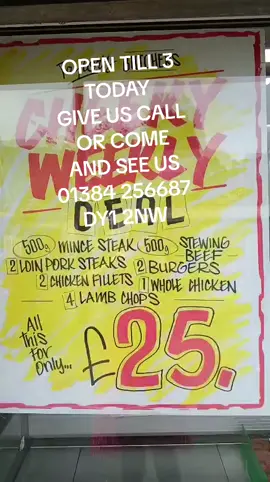 OPEN TILL 3
TODAY
GIVE US CALL
OR COME
AND SEE US
01384 256687
DY1 2NW
DEAL
500g MINCE STEAK 500g STEWING BEEF
2 LOIN PORK STEAKS 2 BURGERS
2 CHICKEN FILLETS 1 WHOLE CHICKEN
4 LAMB CHOPS
All
this
For
Only...
£25.